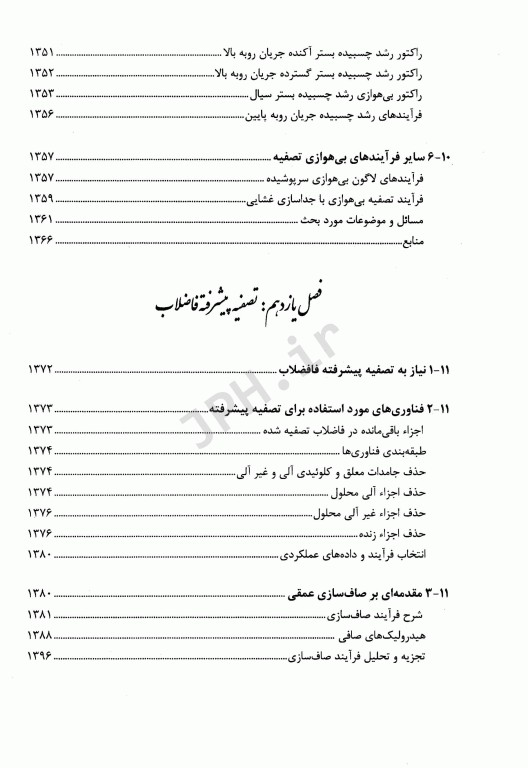 راکتور رشد چسبیده بستر آکنده جریان روبه بالا ........ ۱۳۵۱
راکتور رشد چسبیده بستر گسترده جریان روبه بالا ........ ۱۳۵۲
راکتور بی‌هوازی رشد چسبیده بستر سیال ........ ۱۳۵۳
فرآیندهای رشد چسبیده جریان روبه پایین ........ ۱۳۵۶
۶-۱۰ سایر فرآیندهای بی‌هوازی تصفیه ........ ۱۳۵۷
فرآیندهای لاگون بی‌هوازی سرپوشیده ........ ۱۳۵۷
فرآیند تصفیه بی‌هوازی با جداسازی غشایی ........ ۱۳۵۹
مسائل و موضوعات مورد بحث ........ ۱۳۶۱
منابع ........ ۱۳۶۶
فصل یازدهم: تصفیه پیشرفته فاضلاب
۱-۱۱ نیاز به تصفیه پیشرفته فافضلاب ........ ۱۳۷۲
۲-۱۱ فناوری‌های مورد استفاده برای تصفیه پیشرفته ........ ۱۳۷۳
اجزاء باقی‌مانده در فاضلاب تصفیه شده ........ ۱۳۷۳
طبقه‌بندی فناوری‌ها ........ ۱۳۷۴
حذف جامدات معلق و کلوئیدی آلی و غیر آلی ........ ۱۳۷۴
حذف اجزاء آلی محلول ........ ۱۳۷۴
حذف اجزاء غیر آلی محلول ........ ۱۳۷۶
حذف اجزاء زنده ........ ۱۳۷۶
انتخاب فرآیند و داده‌های عملکردی ........ ۱۳۸۰
۳-۱۱ مقدمه‌ای بر صاف‌سازی عمقی ........ ۱۳۸۰
شرح فرآیند صاف‌سازی ........ ۱۳۸۱
هیدرولیک‌های صافی ........ ۱۳۸۸
تجزیه و تحلیل فرآیند صاف‌سازی ........ ۱۳۹۶
JPH.ir